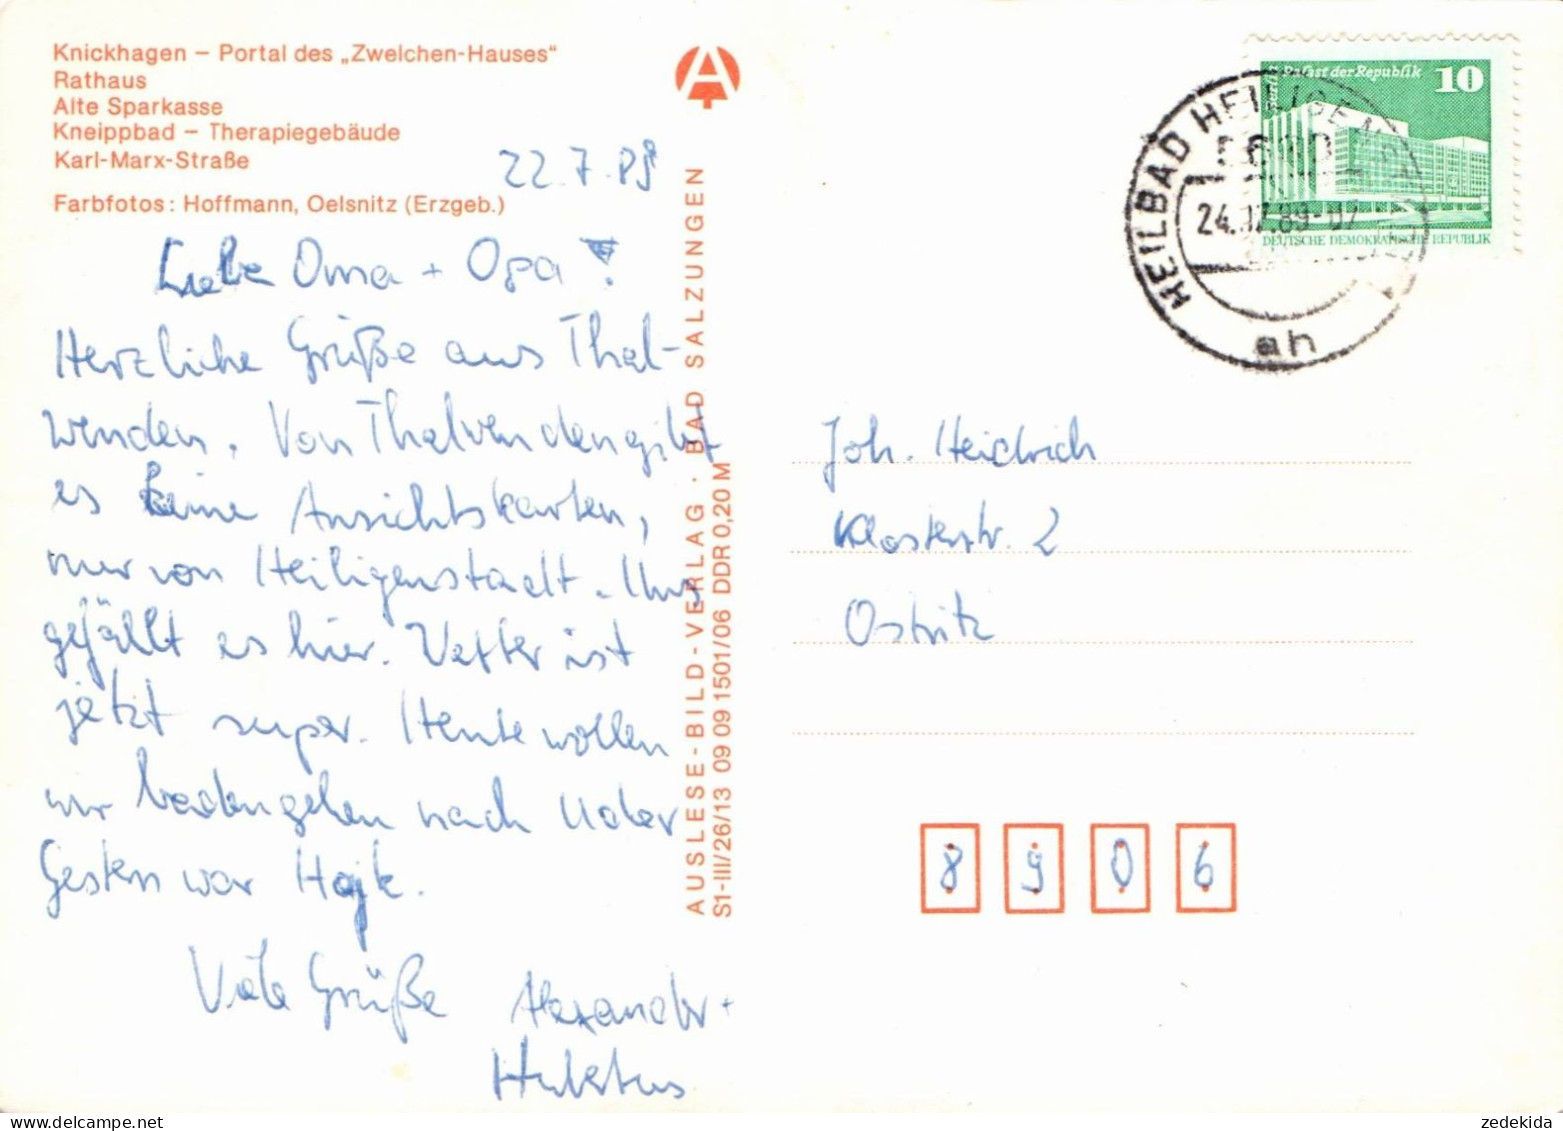 Knickhagen – Portal des „Zwelchen-Hauses“
Rathaus
Alte Sparkasse
Kneippbad – Therapiegebäude
Karl-Marx-Straße
Farbfotos: Hoffmann, Oelsnitz (Erzgeb.)
22.7.89
Liebe Oma + Opa!
Herzliche Grüße aus Thal-
wenden. Von Thalwenden gibt
es keine Ansichtskarten,
nur von Heiligenstadt. Uns
gefällt es hier. Wetter ist
jetzt super. Heute wollen
wir baden gehen nach Uder
Gestern war
Viele Grüße Alexander +
Hubertus
AUSLESE-BILD-VERLAG · BAD SALZUNGEN
S1-III/26/13 09 09 1501/06 DDR 0,20 M
Palast der Republik 10
DEUTSCHE DEMOKRATISCHE REPUBLIK
HEILBAD HEILIGENSTADT
5630
24.07.89-07
ah
Joh. Heidrich
Klosterstr. 2
Ostritz
8906
zedekida